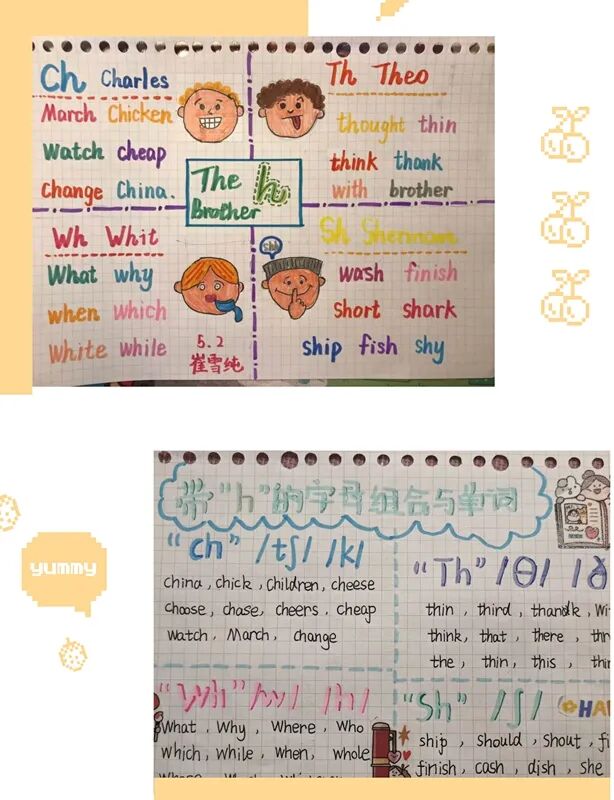 Ch Charles
March Chicken
Watch cheap
Change China.
Th Theo
thought thin
think thank
with brother
The h
Brother
Wh Whit
What why
when which
White while
5.2
崔雪纯
Sh Sherman
wash finish
Short shark
ship fish shy
yummy
带"h"的字母组合与单词
"ch" /tʃ/ /k/
china, chick, children, cheese
choose, chase, cheers, cheap
watch, March, change
"Th" /θ/ /ð
thin, third, thandk, Wi
think, that, there, thr
the, thin, this, thi
"Wh" /w/ /h/
What, Why, Where, Who
which, while, when, whole
"Sh" /ʃ/ HA
ship, should, shout, fi
finish, cash, dish, she